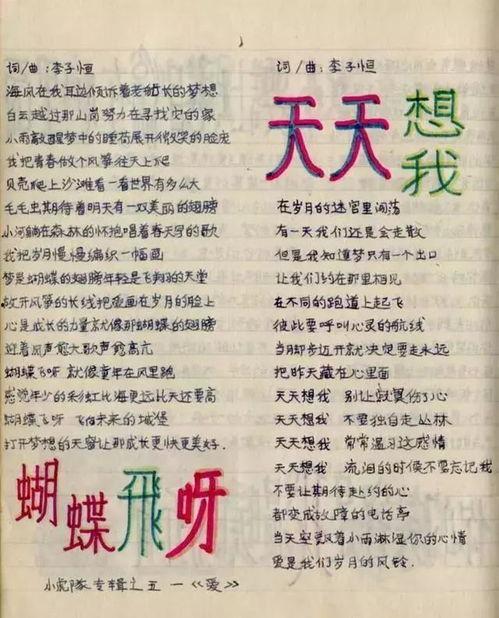 词/曲:李子恒
海风在我耳边倾诉着老船长的梦想
白云越过那山岗努力在寻找它的家
小雨敲醒梦中的睡荷展开微笑的脸庞
我把青春做个风筝往天上爬
贝壳爬上沙滩看一看世界有多么大
毛毛虫期待着明天有一双美丽的翅膀
小河躺在森林的怀抱唱着春天写的歌
我把岁月慢慢编织一幅画
梦是蝴蝶的翅膀年轻是飞翔的天堂
放开风筝的长线把爱画在岁月的脸上
心是成长的力量就像那蝴蝶的翅膀
迎着风声愈大歌声愈高亢
蝴蝶飞呀 就像童年在风里跑
感觉年少的彩虹比海更远比天还要高
蝴蝶飞呀 飞向未来的城堡
打开梦想的天窗让那成长更快更美好.
蝴蝶飛呀
小虎隊专辑之五 —《爱》
词/曲:李子恒
天天想我
在岁月的迷宫里闯荡
有一天我们还是会走散
但是我知道梦只有一个出口
让我们约在那里相见
在不同的跑道上起飞
彼此要呼叫心灵的航线
当脚步迈开就决定要走永远
把昨天藏在心里面
天天想我 别让寂寞伤了心
天天想我 不要独自走丛林
天天想我 常常温习这感情
天天想我 流泪的时候不要忘记我
不要让期待赴约的心
都变成故障的电话亭
当天空飘着小雨淋湿你的心情
更是我们岁月的风铃.